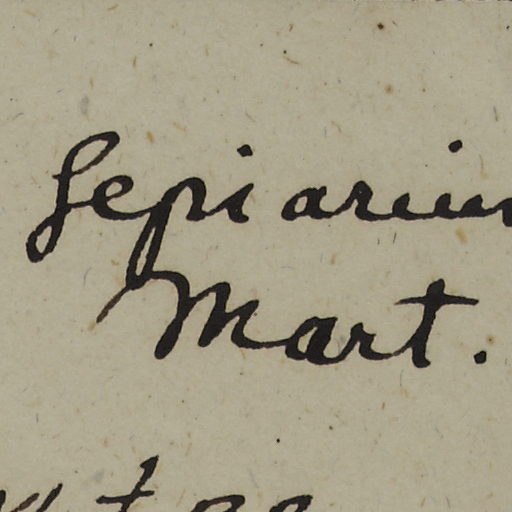 Sepiarium
Mart.